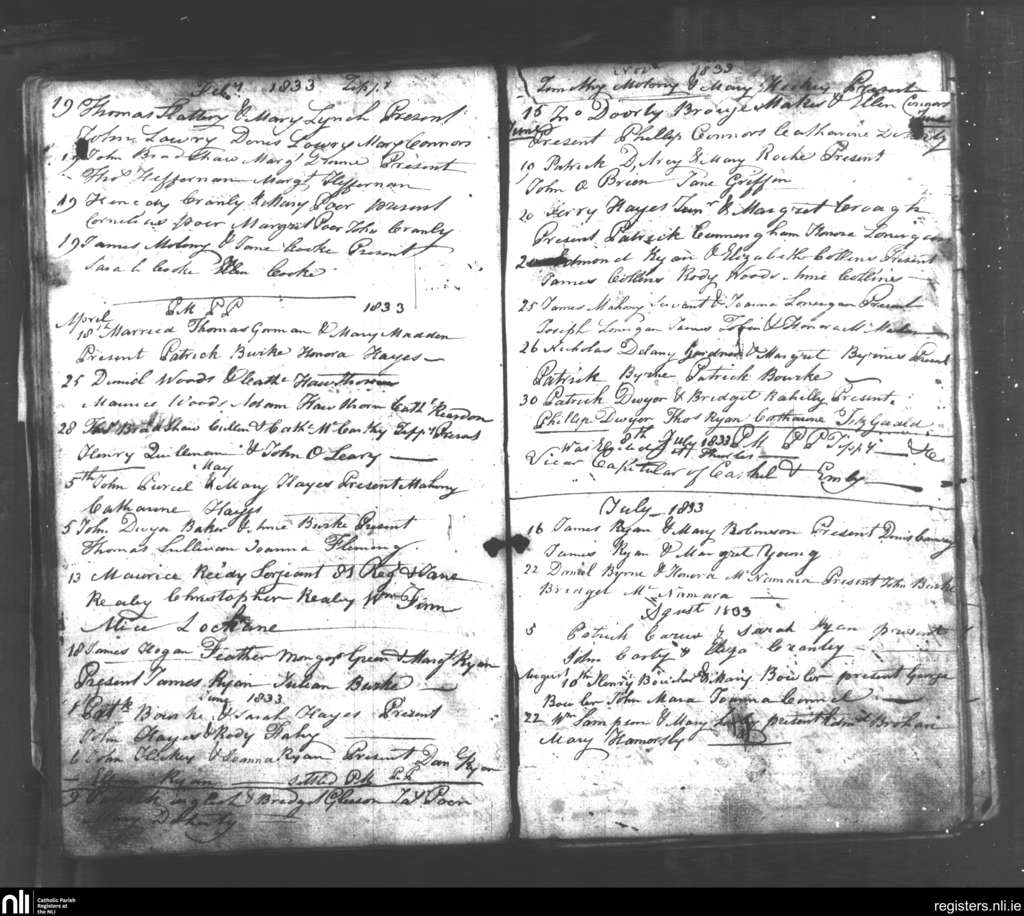 Feby 1833 Tippy
19 Thomas Flattery & Mary Lynch Present
John Lowry Denis Lowry Mary Connors
John Bradshaw Margt Present
Thos Heffernan Margt Heffernan
19 Kenedy Cranly & Mary Poor Present
Cornelius Poor Margret Poor John Cranly
19 James Molony & Jane Cooke Present
Sarah Cooke Ellen Cooke
PM PP 1833
April
18th Married Thomas Gorman & Mary Madden
Present Patrick Burke Honora Hayes
25 Daniel Woods & Cathe Hawthorn
Maurice Wood, Adam Hawthorn Cathe Reardon
28 Thos Bradshaw Cullen & Cathe McCarthy Tippy Present
Henry Quillenan & John O Leary
May
5th John Purcel & Mary Hayes Present Mahony
Catharine Hayes
5 John Dwyer Baker & Anne Burke Present
Thomas Sullivan Joanna Fleming
13 Maurice Reidy Serjeant 81 Regt & Jane
Kealey Christopher Kealey Wm Finn
Alice Lochrane
18 James Hogan Feather Monger Green & Margt Ryan
Present James Ryan Julian Burke
June 1833
1 Patk Bourke & Sarah Hayes Present
John Hayes & Rody Flahy
6 John Hickey & Joanna Ryan Present Dan Ryan
Ryan settled PM PP
9 & Bridget Gleeson
Mary Doherty
1833
Timothy Molony & Mary Hickey Present
15 Jno Doorly Brogue Maker & Ellen Connors
Present Phillip Connors Catharine
19 Patrick D'Arcy & Mary Roche Present
John O Brien Jane Griffin
20 Jerry Hayes Junr & Margret Croagh
Present Patrick Cunningham Honora Lonergan
20 Edmond Ryan & Elizabeth Collins Present
James Collins Rody Woods Anne Collins
25 James Mahony Servant & Joanna Lonergan Present
Joseph Lonigan James & Honora McMahon
26 Nicholas Delany Gardner & Margret Byrnes Present
Patrick Byrne Patrick Bourke
30 Patrick Dwyer & Bridget Rahilly Present
Phillip Dwyer Thos Ryan Catharine Fitzgerald
8th July 1833 PM PP Tippy
Was Elected at Thurles
Vicar Capitular of Cashel & Emly
July 1833
16 James Ryan & Mary Robinson Present Denis
James Ryan & Margret Young
22 Daniel Byrne & Honora McNamara Present John Burke
Bridget McNamara
Agust 1833
5 Patrick Carew & Sarah Ryan present
John Carby & Eliza Cranley
August 10th Henry Bourke & Mary Bowler present George
Bowler John Mara Joanna Connel
22 Wm Sampson & Mary present Edmd Brohan
Mary Hamorsby
nli
Catholic Parish
Registers at
the NLI
registers.nli.ie